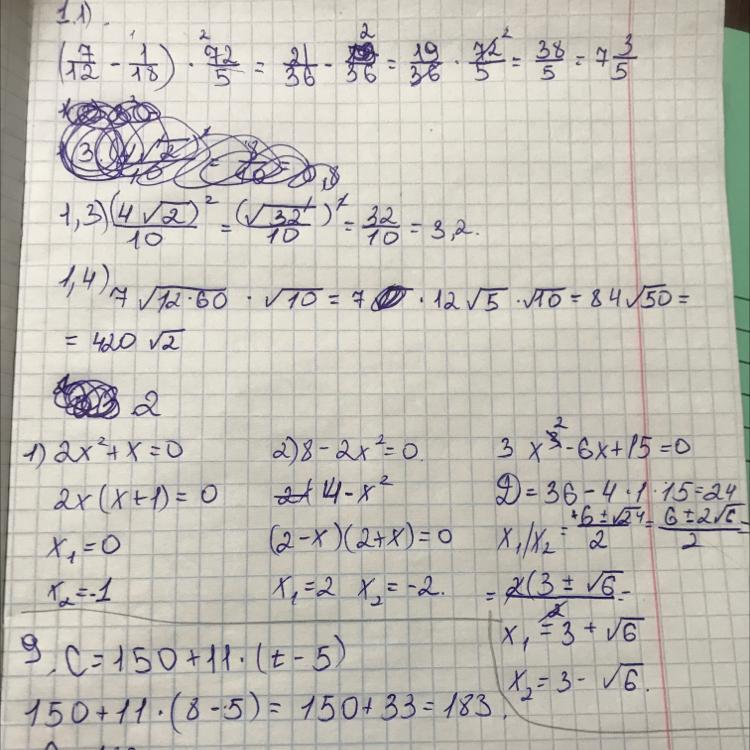 1.1).
(7/12 - 1/18) · 72/5 = 21/36 - 2/36 = 19/36 · 72/5 = 38/5 = 7 3/5
1,3) (4√2)²/10 = (√32)²/10 = 32/10 = 3,2.
1,4) 7√12·60 · √10 = 7 · 12√5 · √10 = 84√50 =
= 420 √2
2
1) 2x² + x = 0
2x(x+1) = 0
x₁ = 0
x₂ = -1
2) 8 - 2x² = 0.
4 - x²
(2-x)(2+x) = 0
x₁ = 2 x₂ = -2.
3 x² - 6x + 15 = 0
D = 36 - 4·1·15 = 24
x₁/x₂ = +6 ± √24/2 = 6 ± 2√6/2 =
= 2(3 ± √6/2 =
x₁ = 3 + √6
x₂ = 3 - √6.
9. C = 150 + 11·(t - 5)
150 + 11·(8 - 5) = 150 + 33 = 183.